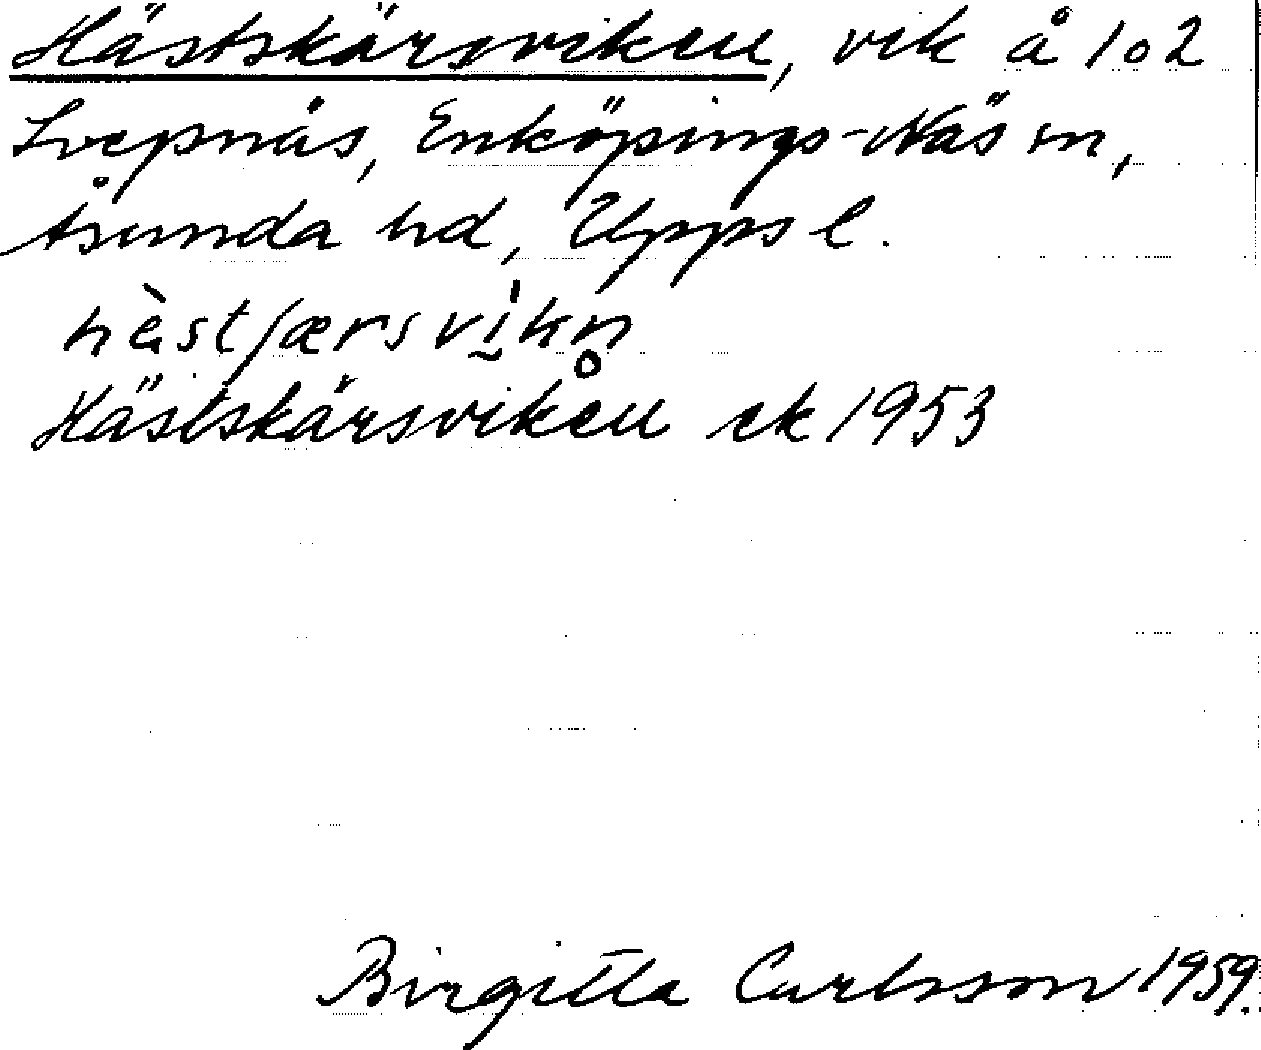 Hästskärsviken, vik å 1 o 2
Svepnäs, Enköpings-Näs sn,
Åsunda hd, Upps l.
hèstʃærsvi̯kn̥
Hästskärsviken ek 1953
Birgitta Carlsson 1959.